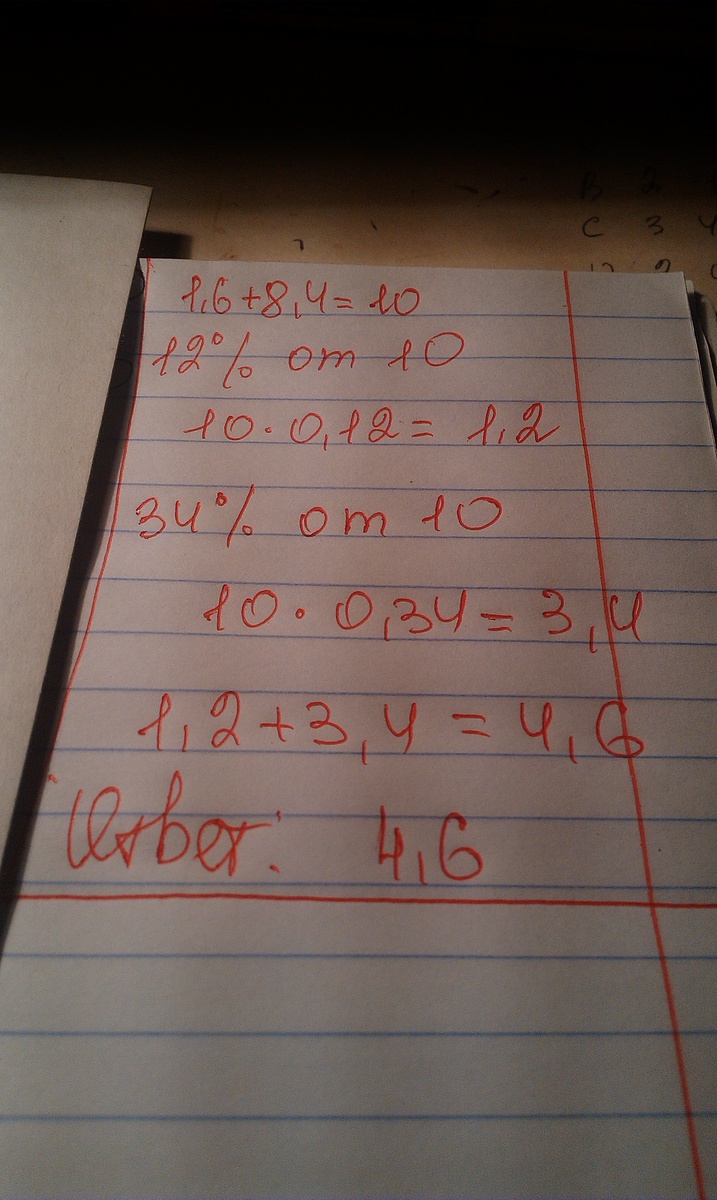 В 2
С 3 4
1,6+8,4=10
12% от 10
10·0,12=1,2
34% от 10
10·0,34=3,4
1,2+3,4=4,6
Ответ: 4,6